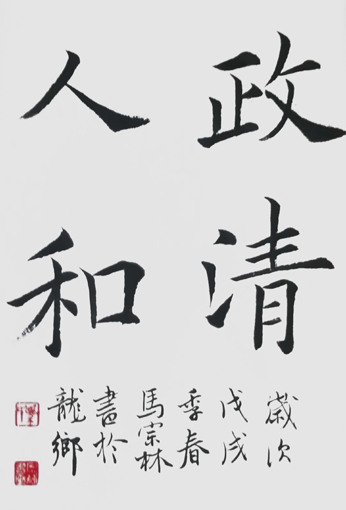 政清
人和
歲次
戊戌
季春
馬宗林
書於
龍鄉